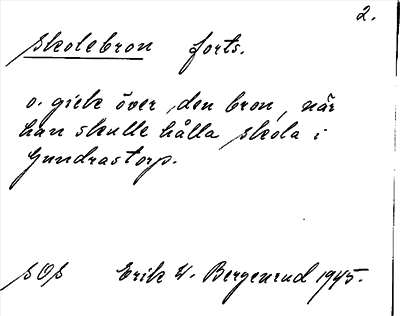 2.
Skolebron forts.
o. gick över den bron, när
han skulle hålla skola i
Gundrastorp.
SOS Erik W. Bergenrud 1945.